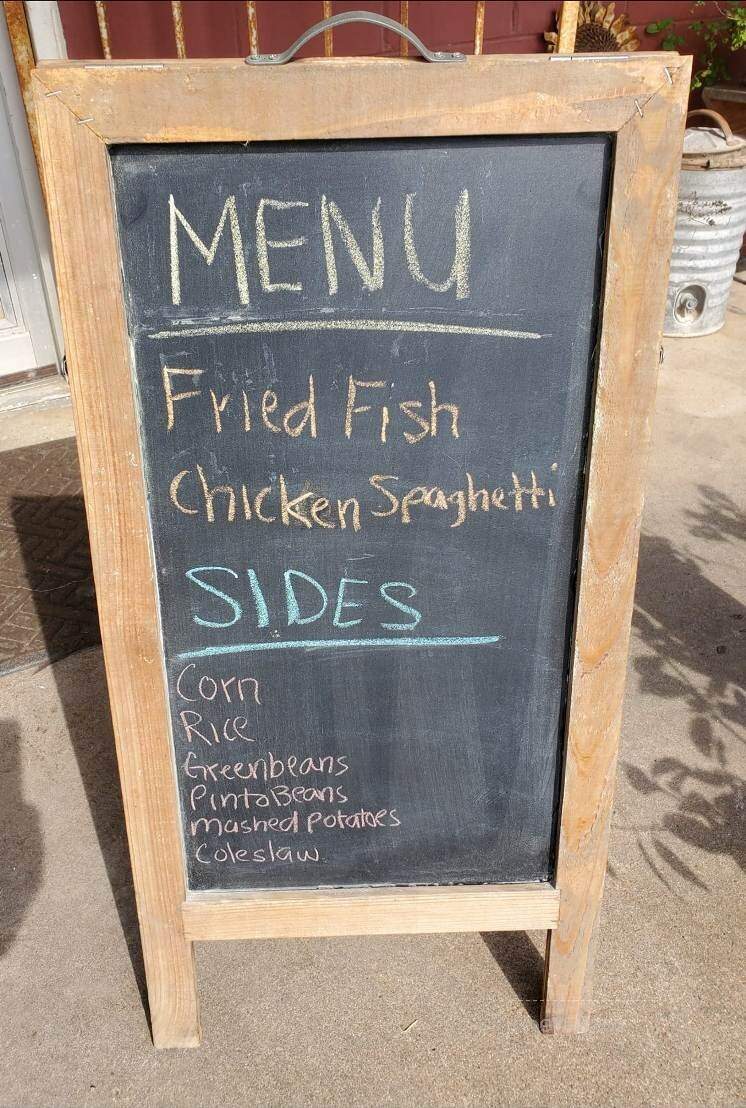 MENU
Fried Fish
Chicken Spaghetti
SIDES
Corn
Rice
Greenbeans
Pinto Beans
mashed Potatoes
Coleslaw